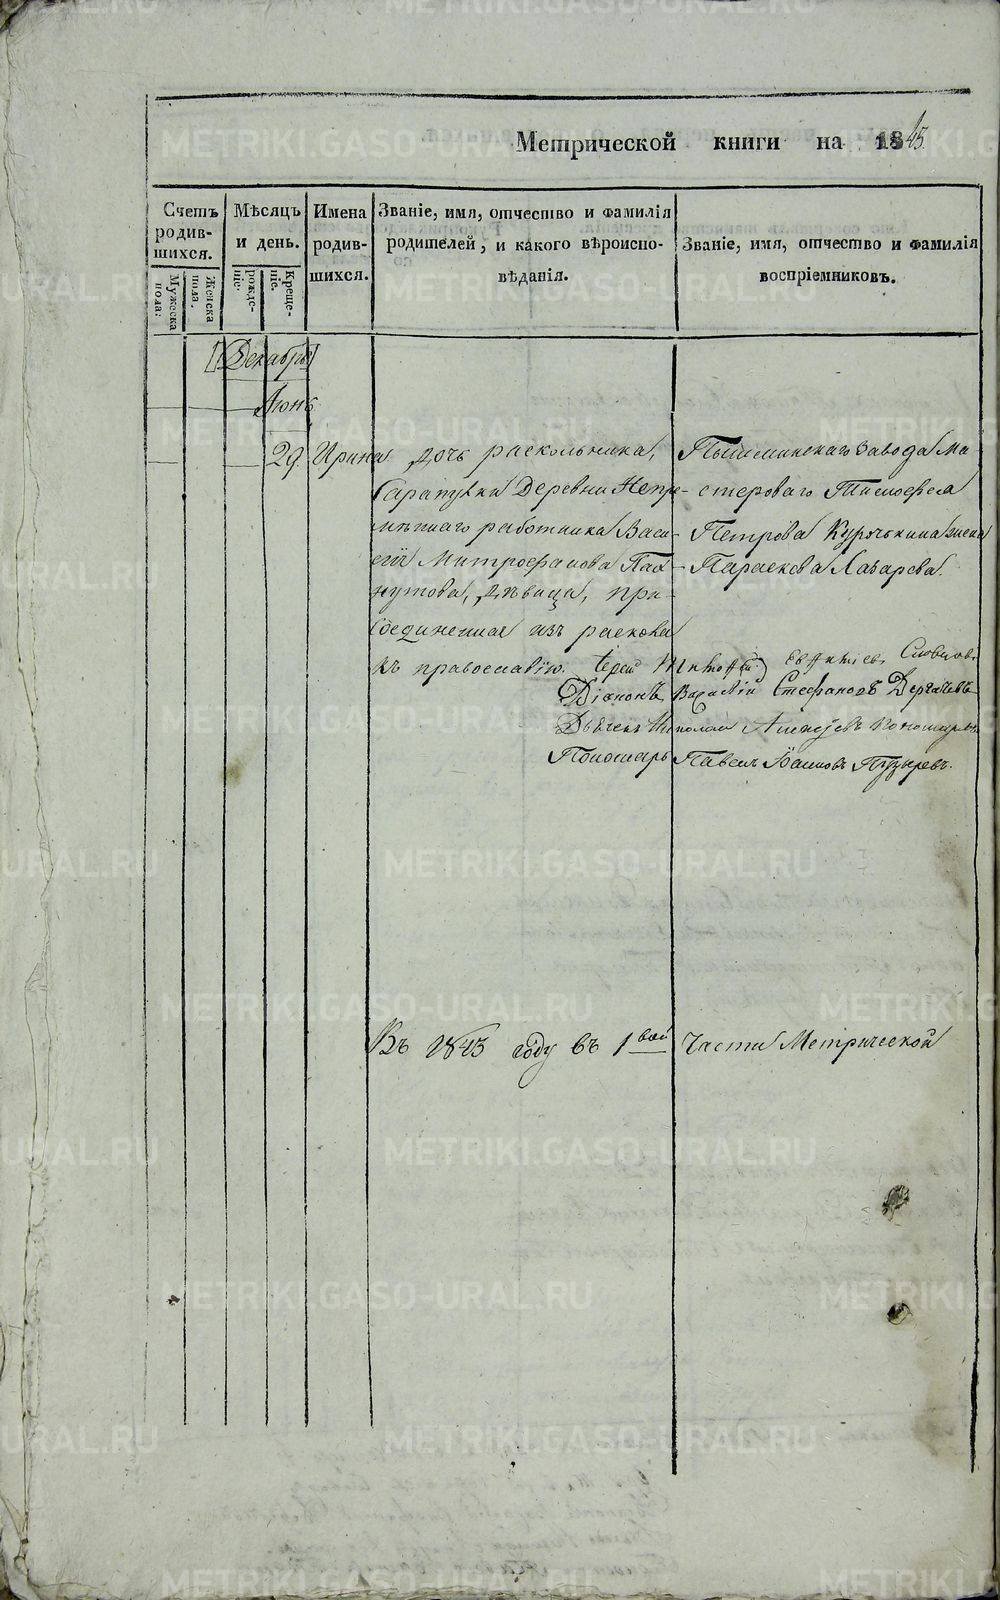 Метрической книги на 1845
Счетъ родив-шихся.
Мужеска пола:
Женска пола.
Мѣсяцъ и день.
рожде-ніе:
Креще-ніе.
Имена родив-шихся.
Званіе, имя, отчество и фамилія
родителей, и какого вѣроиспо-
вѣданія.
Званіе, имя, отчество и фамилія
воспріемниковъ.
[Декабрь]
Іюнь
29 Ирина
Дочь раскольника,
Сарапулки Деревни Непре-
мѣннаго работника Васи-
лія Митрофанова Пах-
нутова, Дѣвица, при-
соединенная изъ раскола
къ православію.
Пышминскаго Завода Ма-
стероваго Тимофея
Петрова Курочькина жена
Параскева Лазарева.
Іерей Словцовъ
Діаконъ Василій Стефановъ Дергачевъ
Дьячекъ Николай Алексѣевъ
Пономарь Павелъ Іоанновъ Пузыревъ.
Въ 1845 году въ 1вой Части Метрической
METRIKI.GASO-URAL.RU